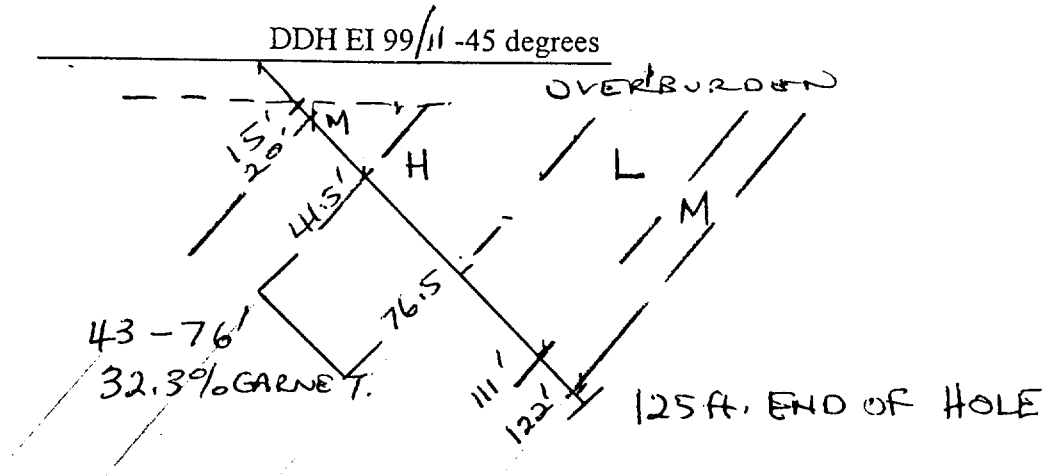 DDH EI 99/11 -45 degrees
OVERBURDEN
15'
20'
M
H
L
41.5'
M
76.5
43 - 76'
32.3% GARNET.
111'
122'
125 ft. END OF HOLE